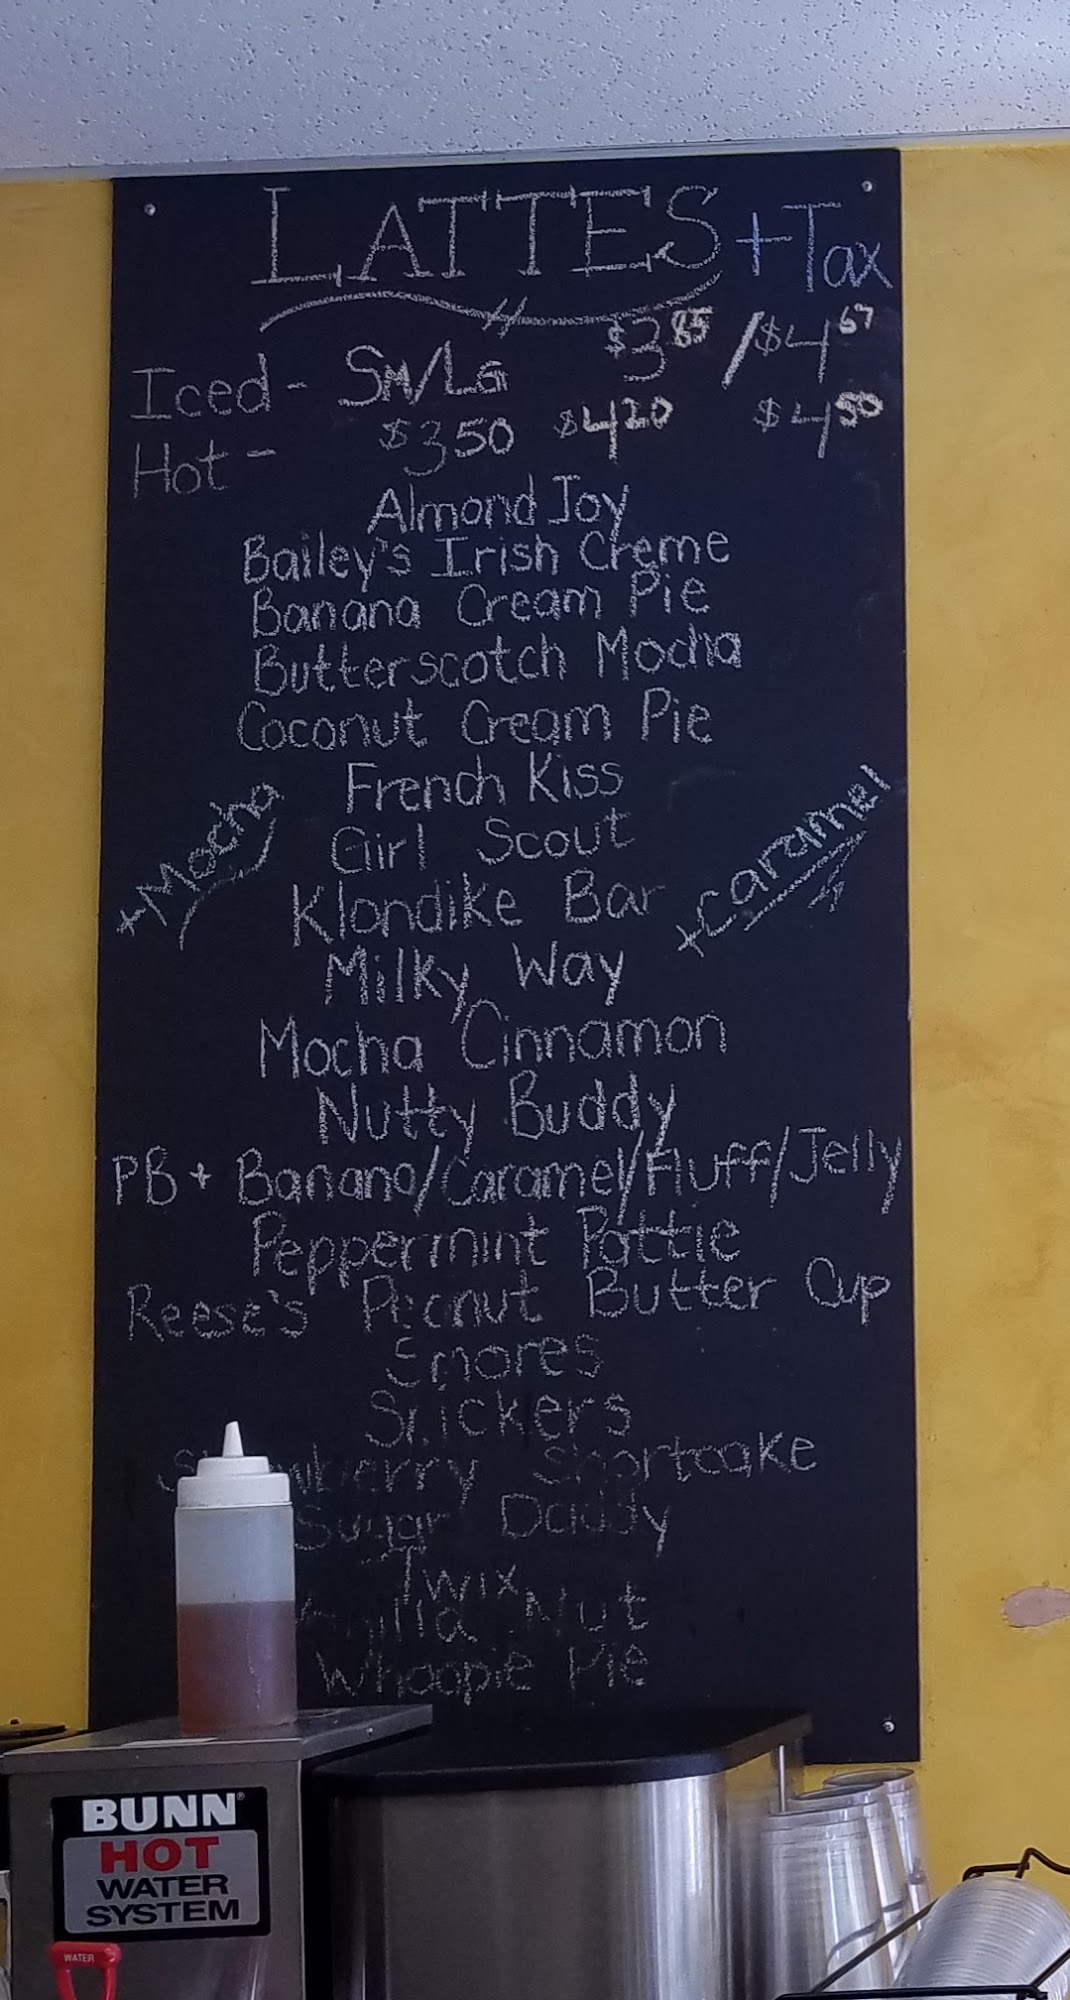 LATTES + Tax
Iced - Sm/LG $3.85 / $4.67
Hot - $3.50 $4.20 $4.50
Almond Joy
Bailey's Irish Creme
Banana Cream Pie
Butterscotch Mocha
Coconut Cream Pie
French Kiss
Girl Scout
+Mocha
+caramel
Klondike Bar
Milky Way
Mocha Cinnamon
Nutty Buddy
PB + Banana/Caramel/Fluff/Jelly
Peppermint Pattie
Reese's Peanut Butter Cup
Smores
Snickers
Shortcake
Sugar Daddy
Twix
Nut
Whoopie Pie
BUNN®
HOT
WATER
SYSTEM
WATER